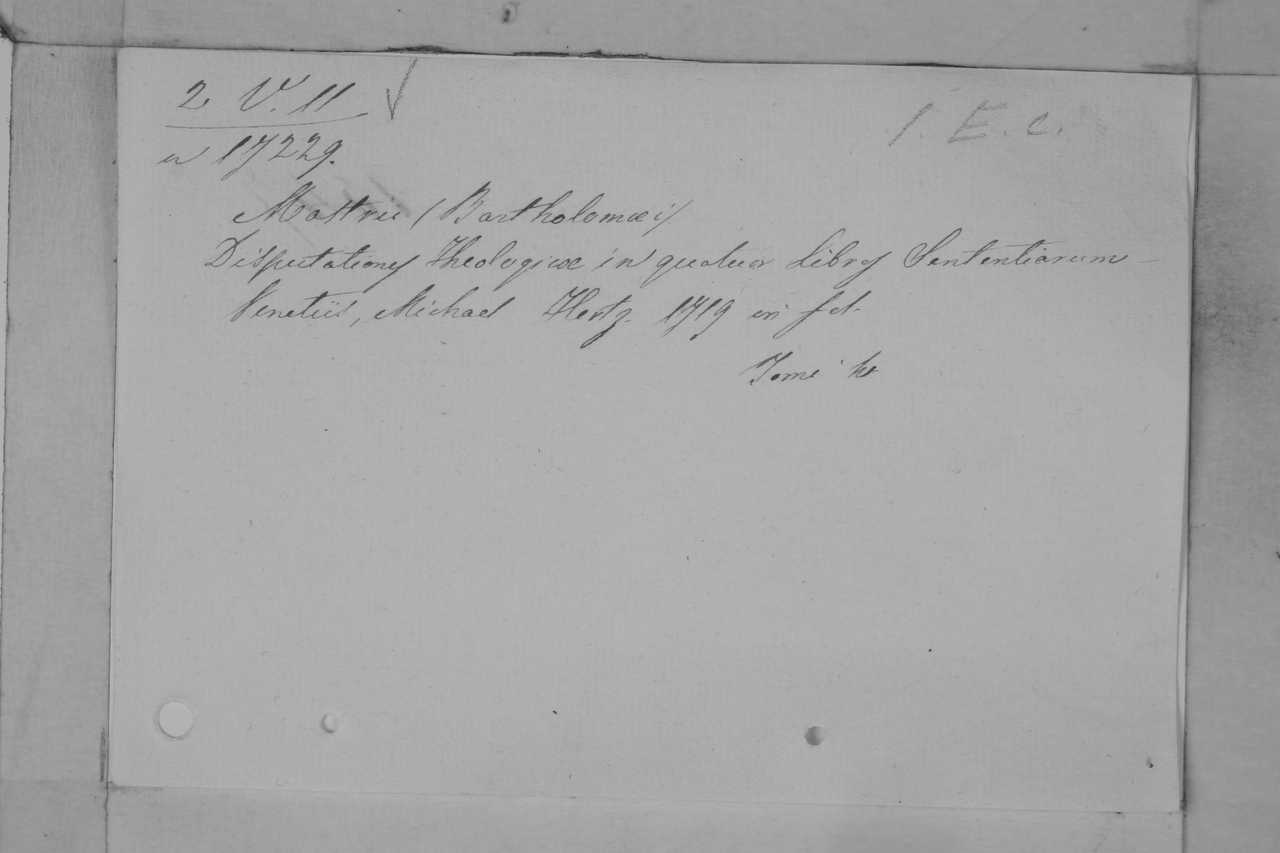 2 V. 11
1. E. c.
a 17229.
Mastrii (Bartholomæi)
Disputationes Theologicæ in quatuor Libros Sententiarum
Venetiis, Michael Hertz 1719 in fol.
Tomi